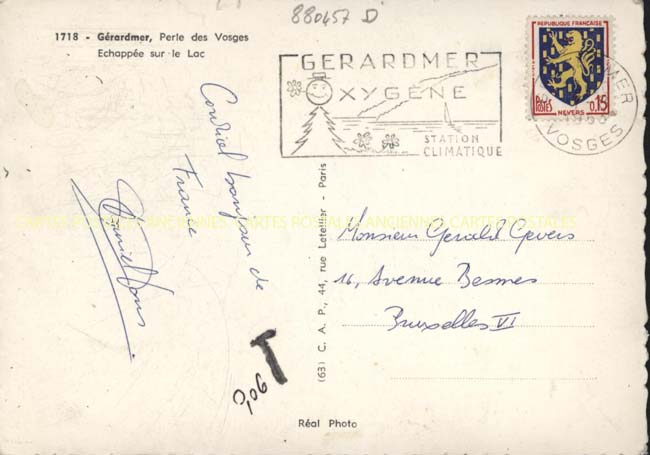 880457 D
1718 - Gérardmer, Perle des Vosges
Echappée sur le Lac
GERARDMER
OXYGÈNE
STATION
CLIMATIQUE
REPUBLIQUE FRANÇAISE
POSTES
0,15
NEVERS
VOSGES
Cordial bonjour de
France
(63) C. A. P., 44, rue Letellier - Paris
CARTES POSTALES ANCIENNES, CARTES POSTALES ANCIENNES, CARTES POSTALES
Monsieur Gerald Gevers
16, Avenue Besmes
Bruxelles VI
T
0,06
Réal Photo